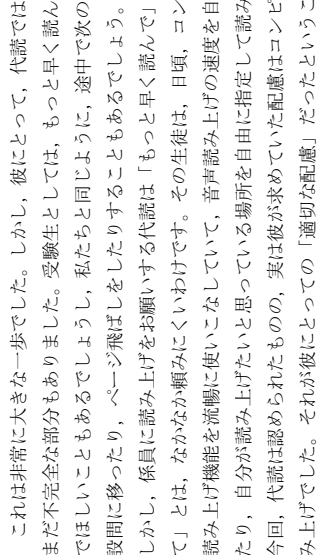 これは非常に大きな一歩でした。しかし，彼にとって，代読では
まだ不完全な部分もありました。受験生としては，もっと早く読ん
でほしいこともあるでしょうし，私たちと同じように，途中で次の
設問に移ったり，ページ飛ばしをしたりすることもあるでしょう。
しかし，係員に読み上げをお願いする代読は「もっと早く読んで」
て」とは，なかなか頼みにくいわけです。その生徒は，日頃，コン
読み上げ機能を流暢に使いこなしていて，音声読み上げの速度を自
たり，自分が読み上げたいと思っている場所を自由に指定して読み
今回，代読は認められたものの，実は彼が求めていた配慮はコンピ
み上げでした。それが彼にとっての「適切な配慮」だったというこ